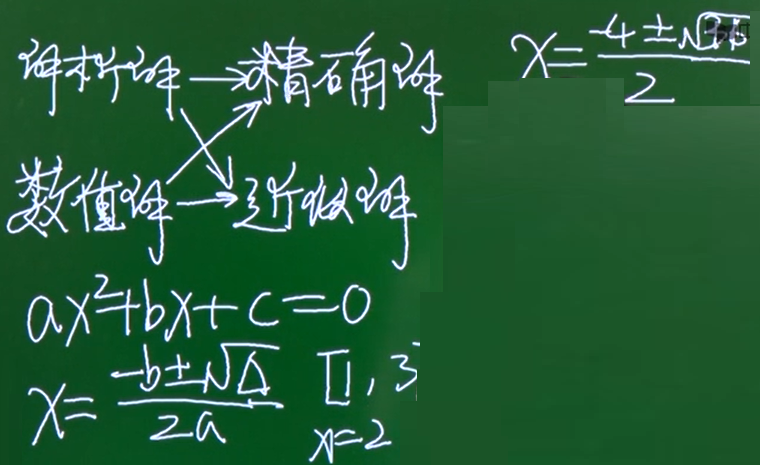 解析解 → 精确解
数值解 → 近似解
ax²+bx+c=0
x= -b±√Δ / 2a
[1,3
x=2
x= -4±√ / 2